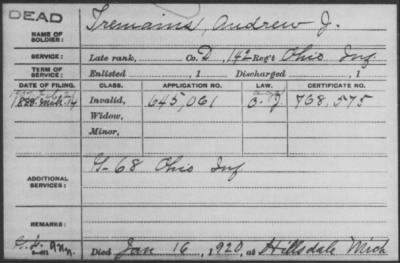 DEAD
NAME OF SOLDIER: Tremains, Andrew J.
SERVICE: Late rank, Co. D, 142 Reg't Ohio Inf
TERM OF SERVICE: Enlisted , 1 Discharged , 1
DATE OF FILING. CLASS. APPLICATION NO. LAW. CERTIFICATE NO.
1888 Mch 14 Invalid, 645,061 768,575
Widow,
Minor,
ADDITIONAL SERVICES: G-68 Ohio Inf
REMARKS:
Died Jan 16, 1920, at Hillsdale Mich